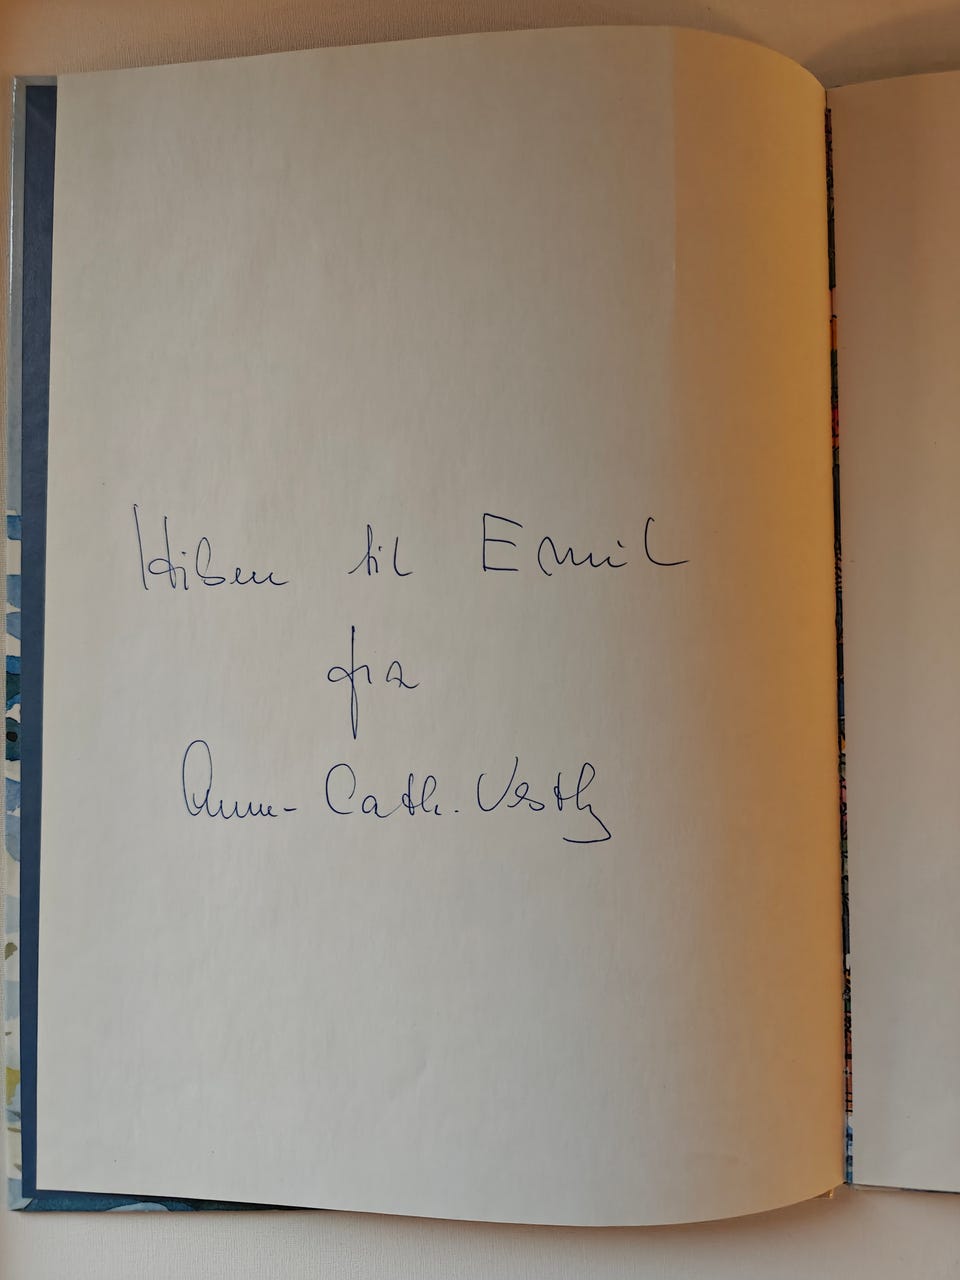 Hilsen til Emil
fra
Anne-Cath. Vestly